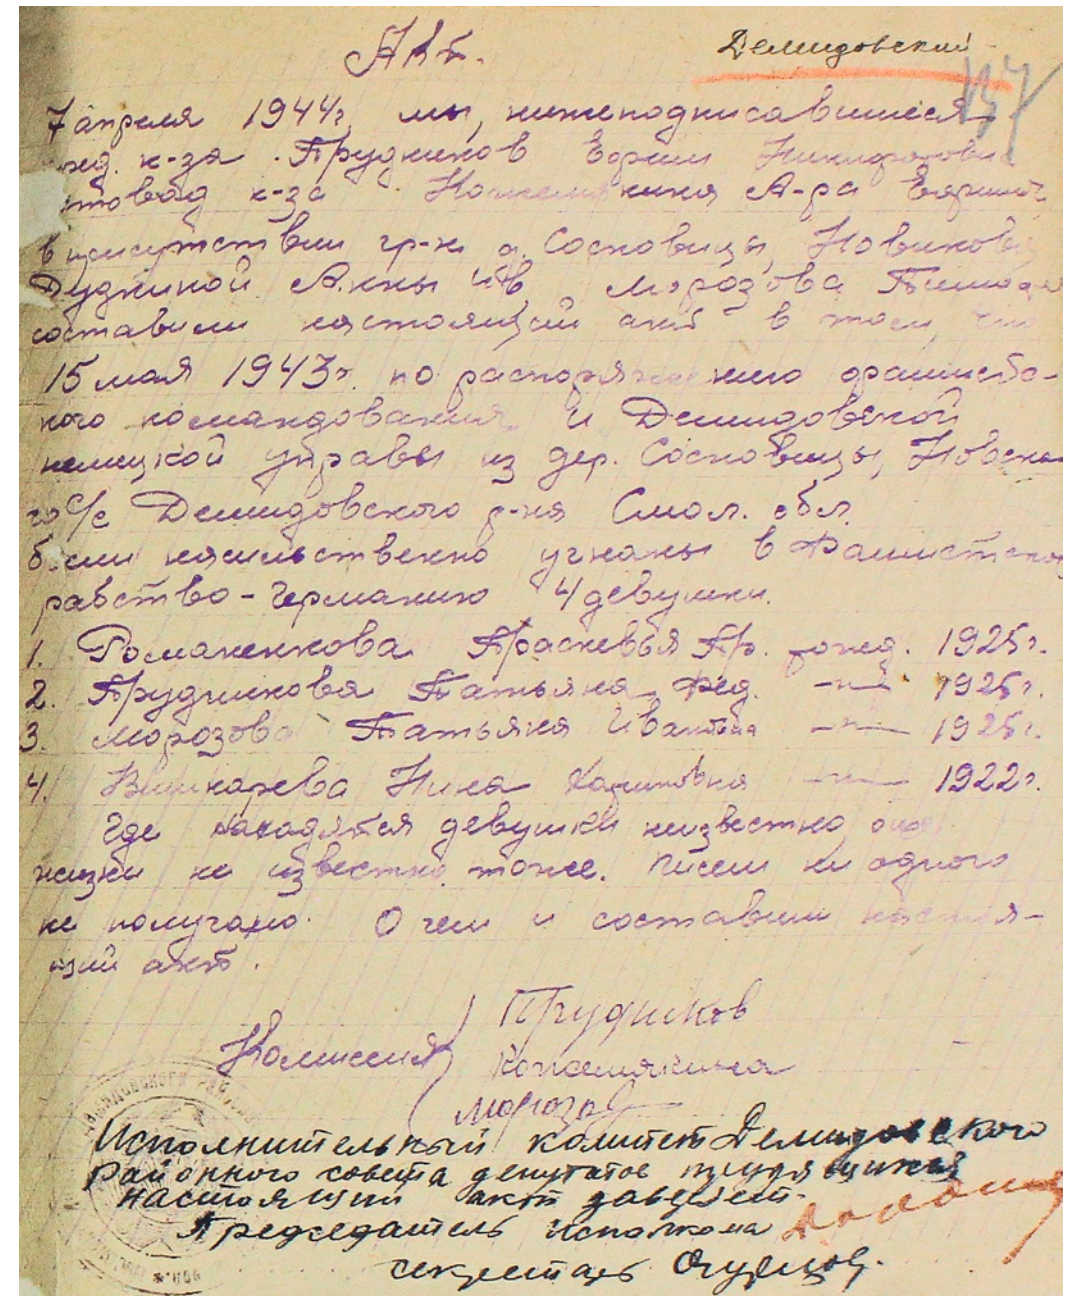 Акт.
Демидовский
137
7 апреля 1944г, мы, нижеподписавшиеся
пред. к-за Прудников Ефрем Никифорович
к-за Кожемякина А-ра
в присутствии гр-н д. Сосновицы, Новикова,
Дудкиной Анны Ив, Морозова
составили настоящий акт в том, что
15 мая 1943г. по распоряжению фашистс-
кого командования и Демидовской
немецкой управы из дер. Сосновицы,
го с/с Демидовского р-на Смол. обл.
были насильственно угнаны в Фашистское
рабство - Германию 4 девушки.
1. Романенкова Прасневья Пр. рожд. 1925г.
2. Прудникова Татьяна Фед. -"- 1925г.
3. Морозова Татьяна Ивановна -"- 1925г.
4. Вишнарева Нина -"- 1922г.
Где находятся девушки неизвестно, о их
жизни не известно тоже. Писем ни одного
не получано. О чем и составили настоя-
щий акт.
Комиссия
Прудников
Кожемякина
Морозов
Исполнительный комитет Демидовского
районного совета депутатов трудящихся
настоящий акт заверяет.
Председатель исполкома
секретарь Огурцов.